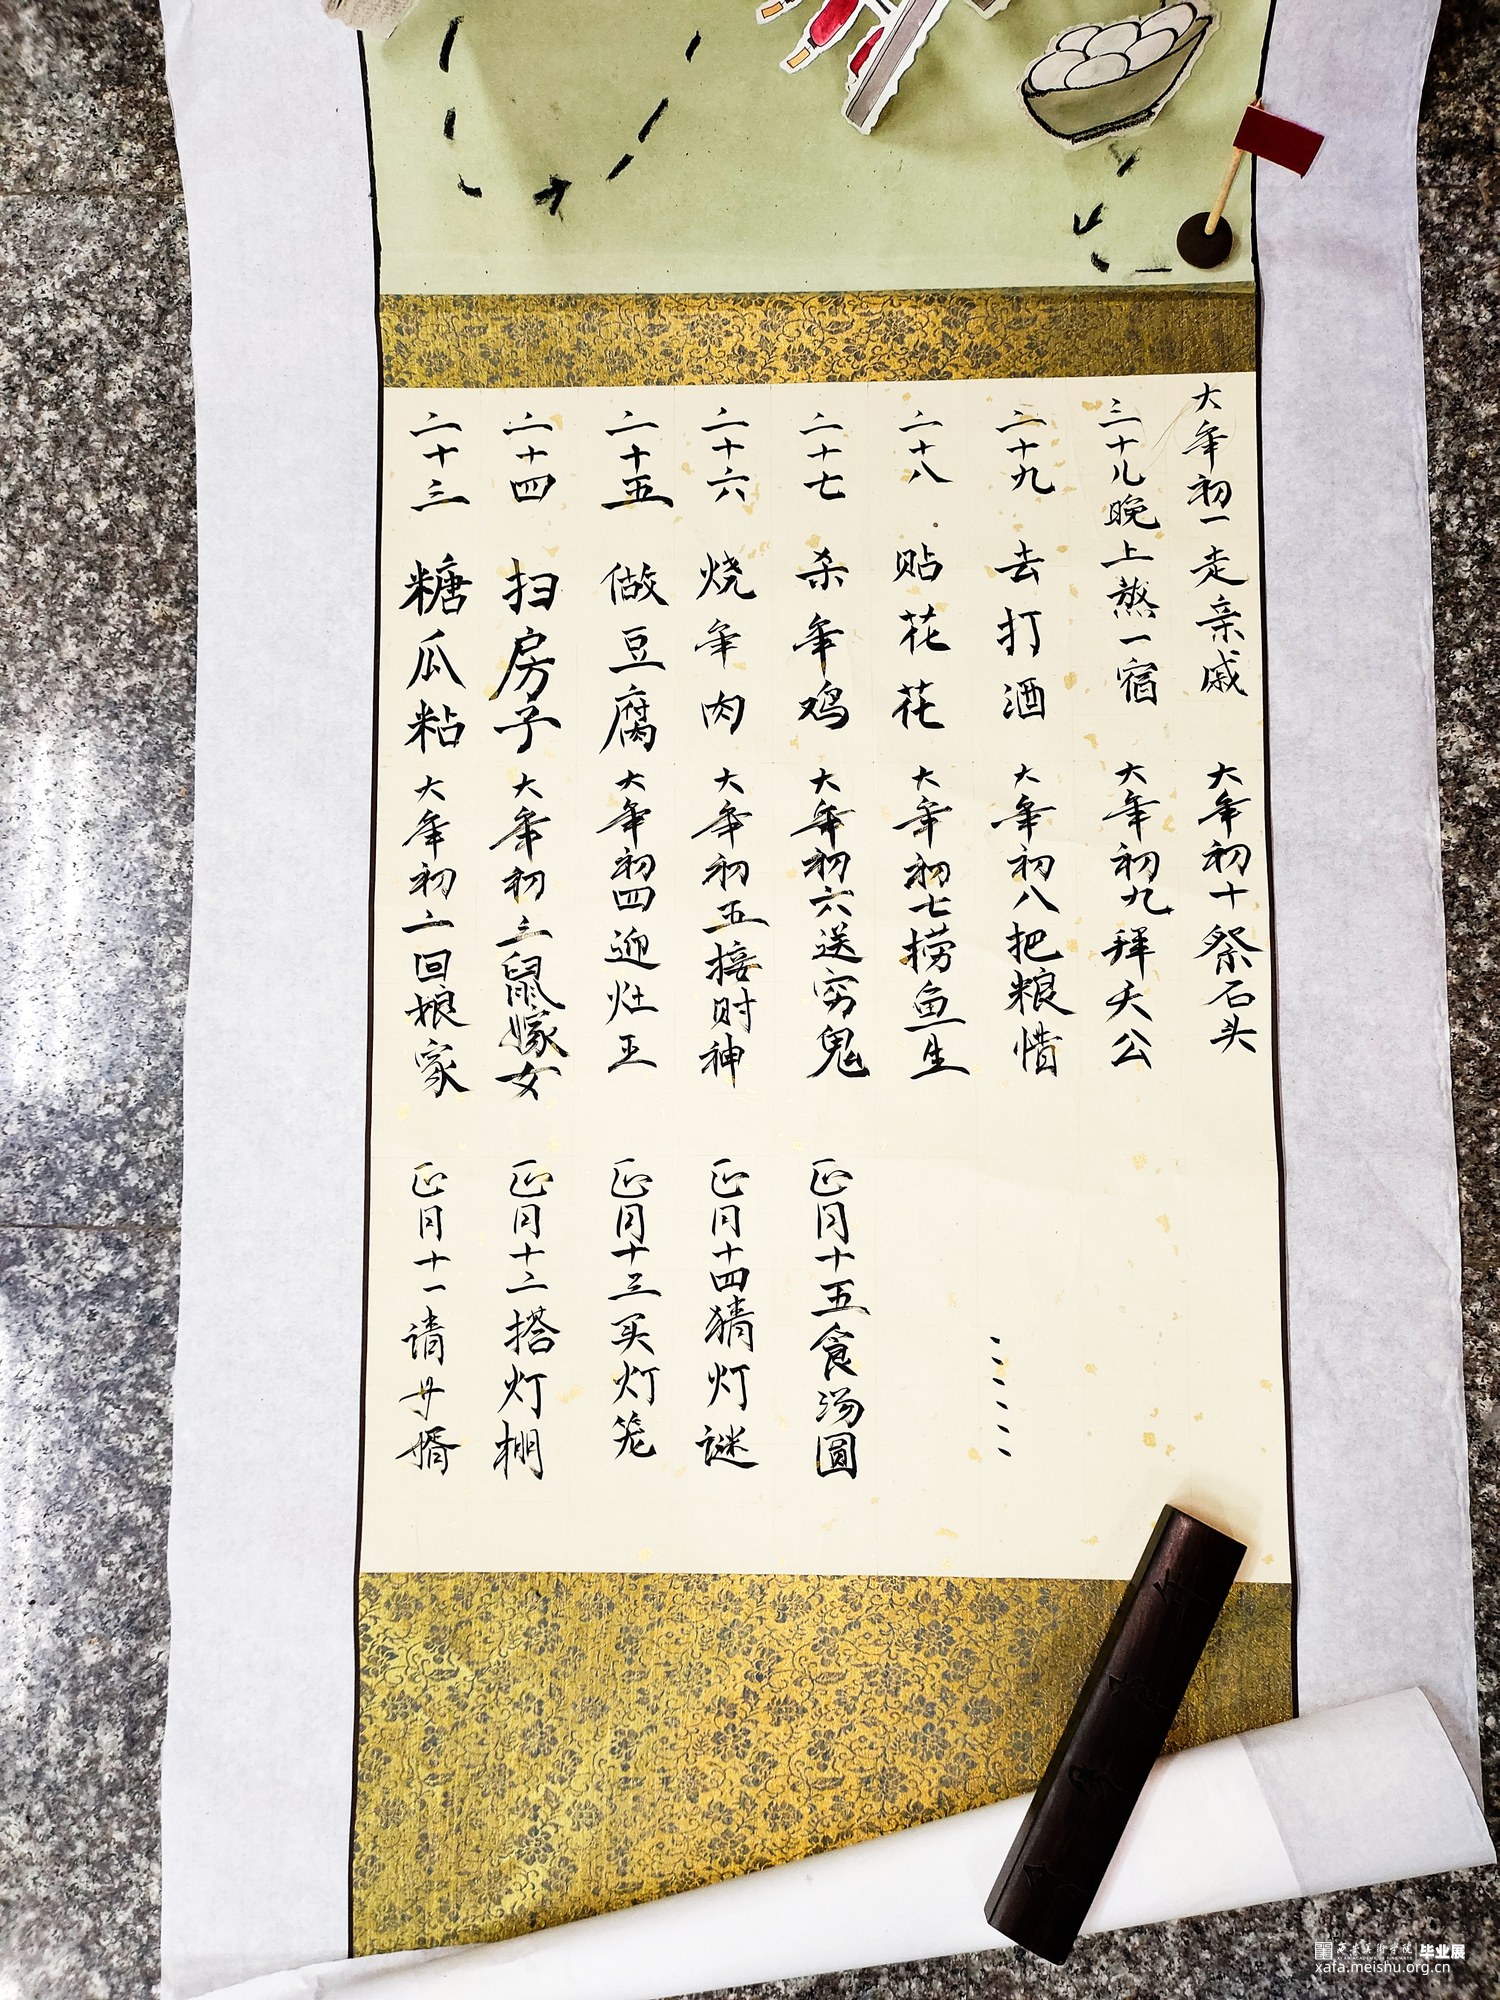 二十三 糖瓜粘
二十四 扫房子
二十五 做豆腐
二十六 烧年肉
二十七 杀年鸡
二十八 贴花花
二十九 去打酒
三十儿晚上熬一宿
大年初一走亲戚
大年初二回娘家
大年初三鼠嫁女
大年初四迎灶王
大年初五接财神
大年初六送穷鬼
大年初七捞鱼生
大年初八把粮惜
大年初九拜天公
大年初十祭石头
正月十一请婿
正月十二搭灯棚
正月十三买灯笼
正月十四猜灯谜
正月十五食汤圆
西安美术学院 毕业展
xafa.meishu.org.cn